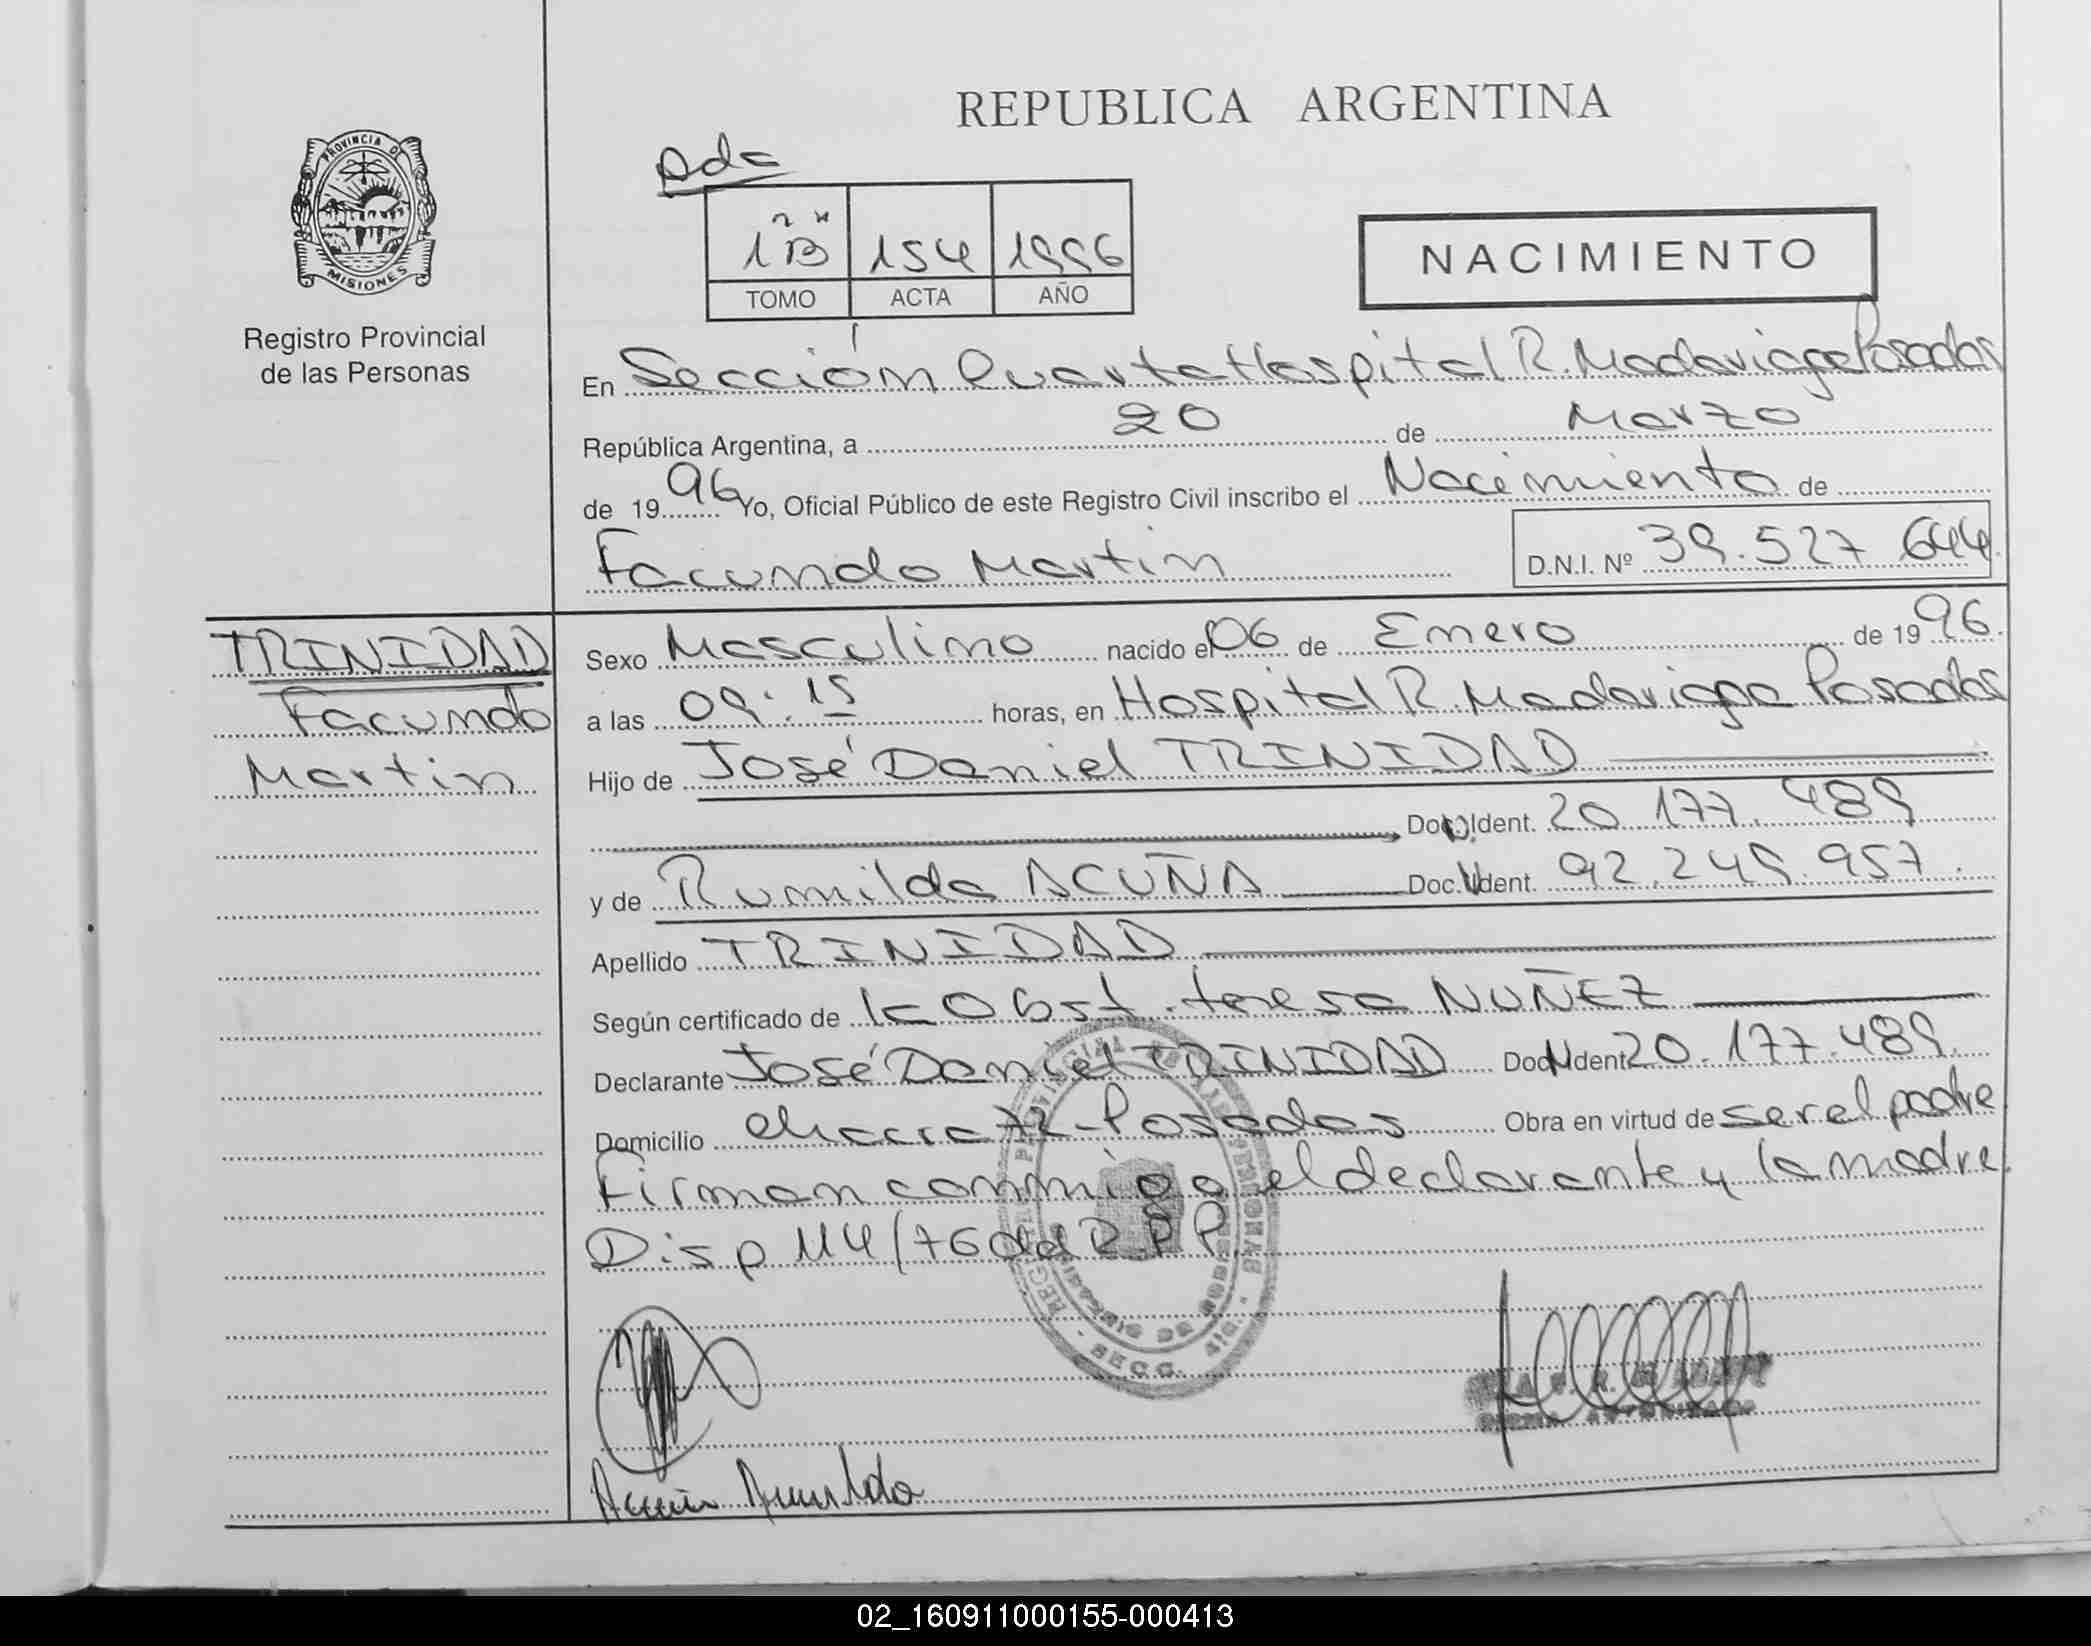 REPUBLICA ARGENTINA
PROVINCIA DE
MISIONES
Registro Provincial
de las Personas
1 "B" 154 1996
TOMO ACTA AÑO
NACIMIENTO
En Sección Cuarta Hospital R. Madariaga Posadas
República Argentina, a 20 de Marzo
de 1996 Yo, Oficial Público de este Registro Civil inscribo el Nacimiento de
Facundo Martin D.N.I. Nº 39.527.644
TRINIDAD
Facundo
Martin
Sexo Masculino nacido el 06 de Enero de 1996
a las 09:15 horas, en Hospital R. Madariaga Posadas
Hijo de José Daniel TRINIDAD
Doc. Ident. 20.177.489
y de Rumilda ACUÑA Doc. Ident. 92.249.957.
Apellido TRINIDAD
Según certificado de la Obst. teresa NUÑEZ
Declarante José Daniel TRINIDAD Doc. Ident 20.177.489.
Domicilio chacra 72 - Posadas Obra en virtud de ser el padre
Firman conmigo el declarante y la madre.
Disp 114/76 del R.P.P.
Acuña Rumilda
02_160911000155-000413